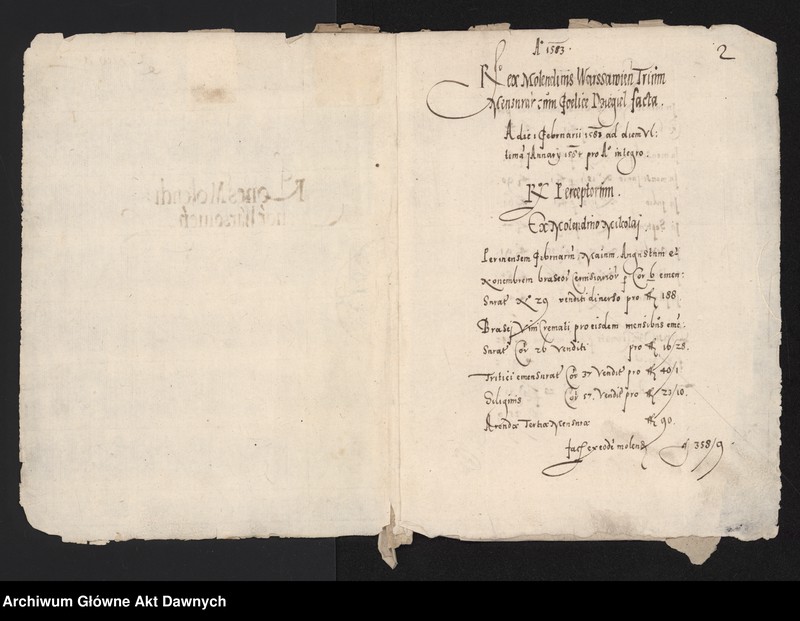 2
Aº 1583.
Rº ex Molendinis Warssavien Trium
Mensurar cum Godlice Dzięgiel facta.
A die 1 Februarii 1583 ad diem Vl:
timā January 1584 pro Aº integro.
Rº Perceptorum.
Ex Molendino Nicolaj
Per mensem Februariū, Maium, Augustum et
Nouembrem braseor Cerevisiarior p Cor 6 emen:
surat Nº 29 venditi diuerso pro fl 188
Brasej Vini Cremati pro eisdem mensibus eme:
surat Cor 26 Venditi pro fl 16/28.
Tritici emensurat Cor 37 Vendit pro fl 40/1
Siliginis Cor 57 Vendit pro fl 23/10.
Arenda Tertiæ Mensuræ fl 90.
Facit ex eodē molend fl 358/9.
Archiwum Główne Akt Dawnych